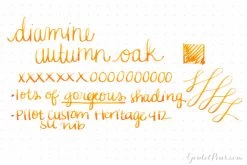 diamine
autumn oak
xxxxxxx oooooooooo
• lots of gorgeous shading
• Pilot Custom Heritage 912
SU nib